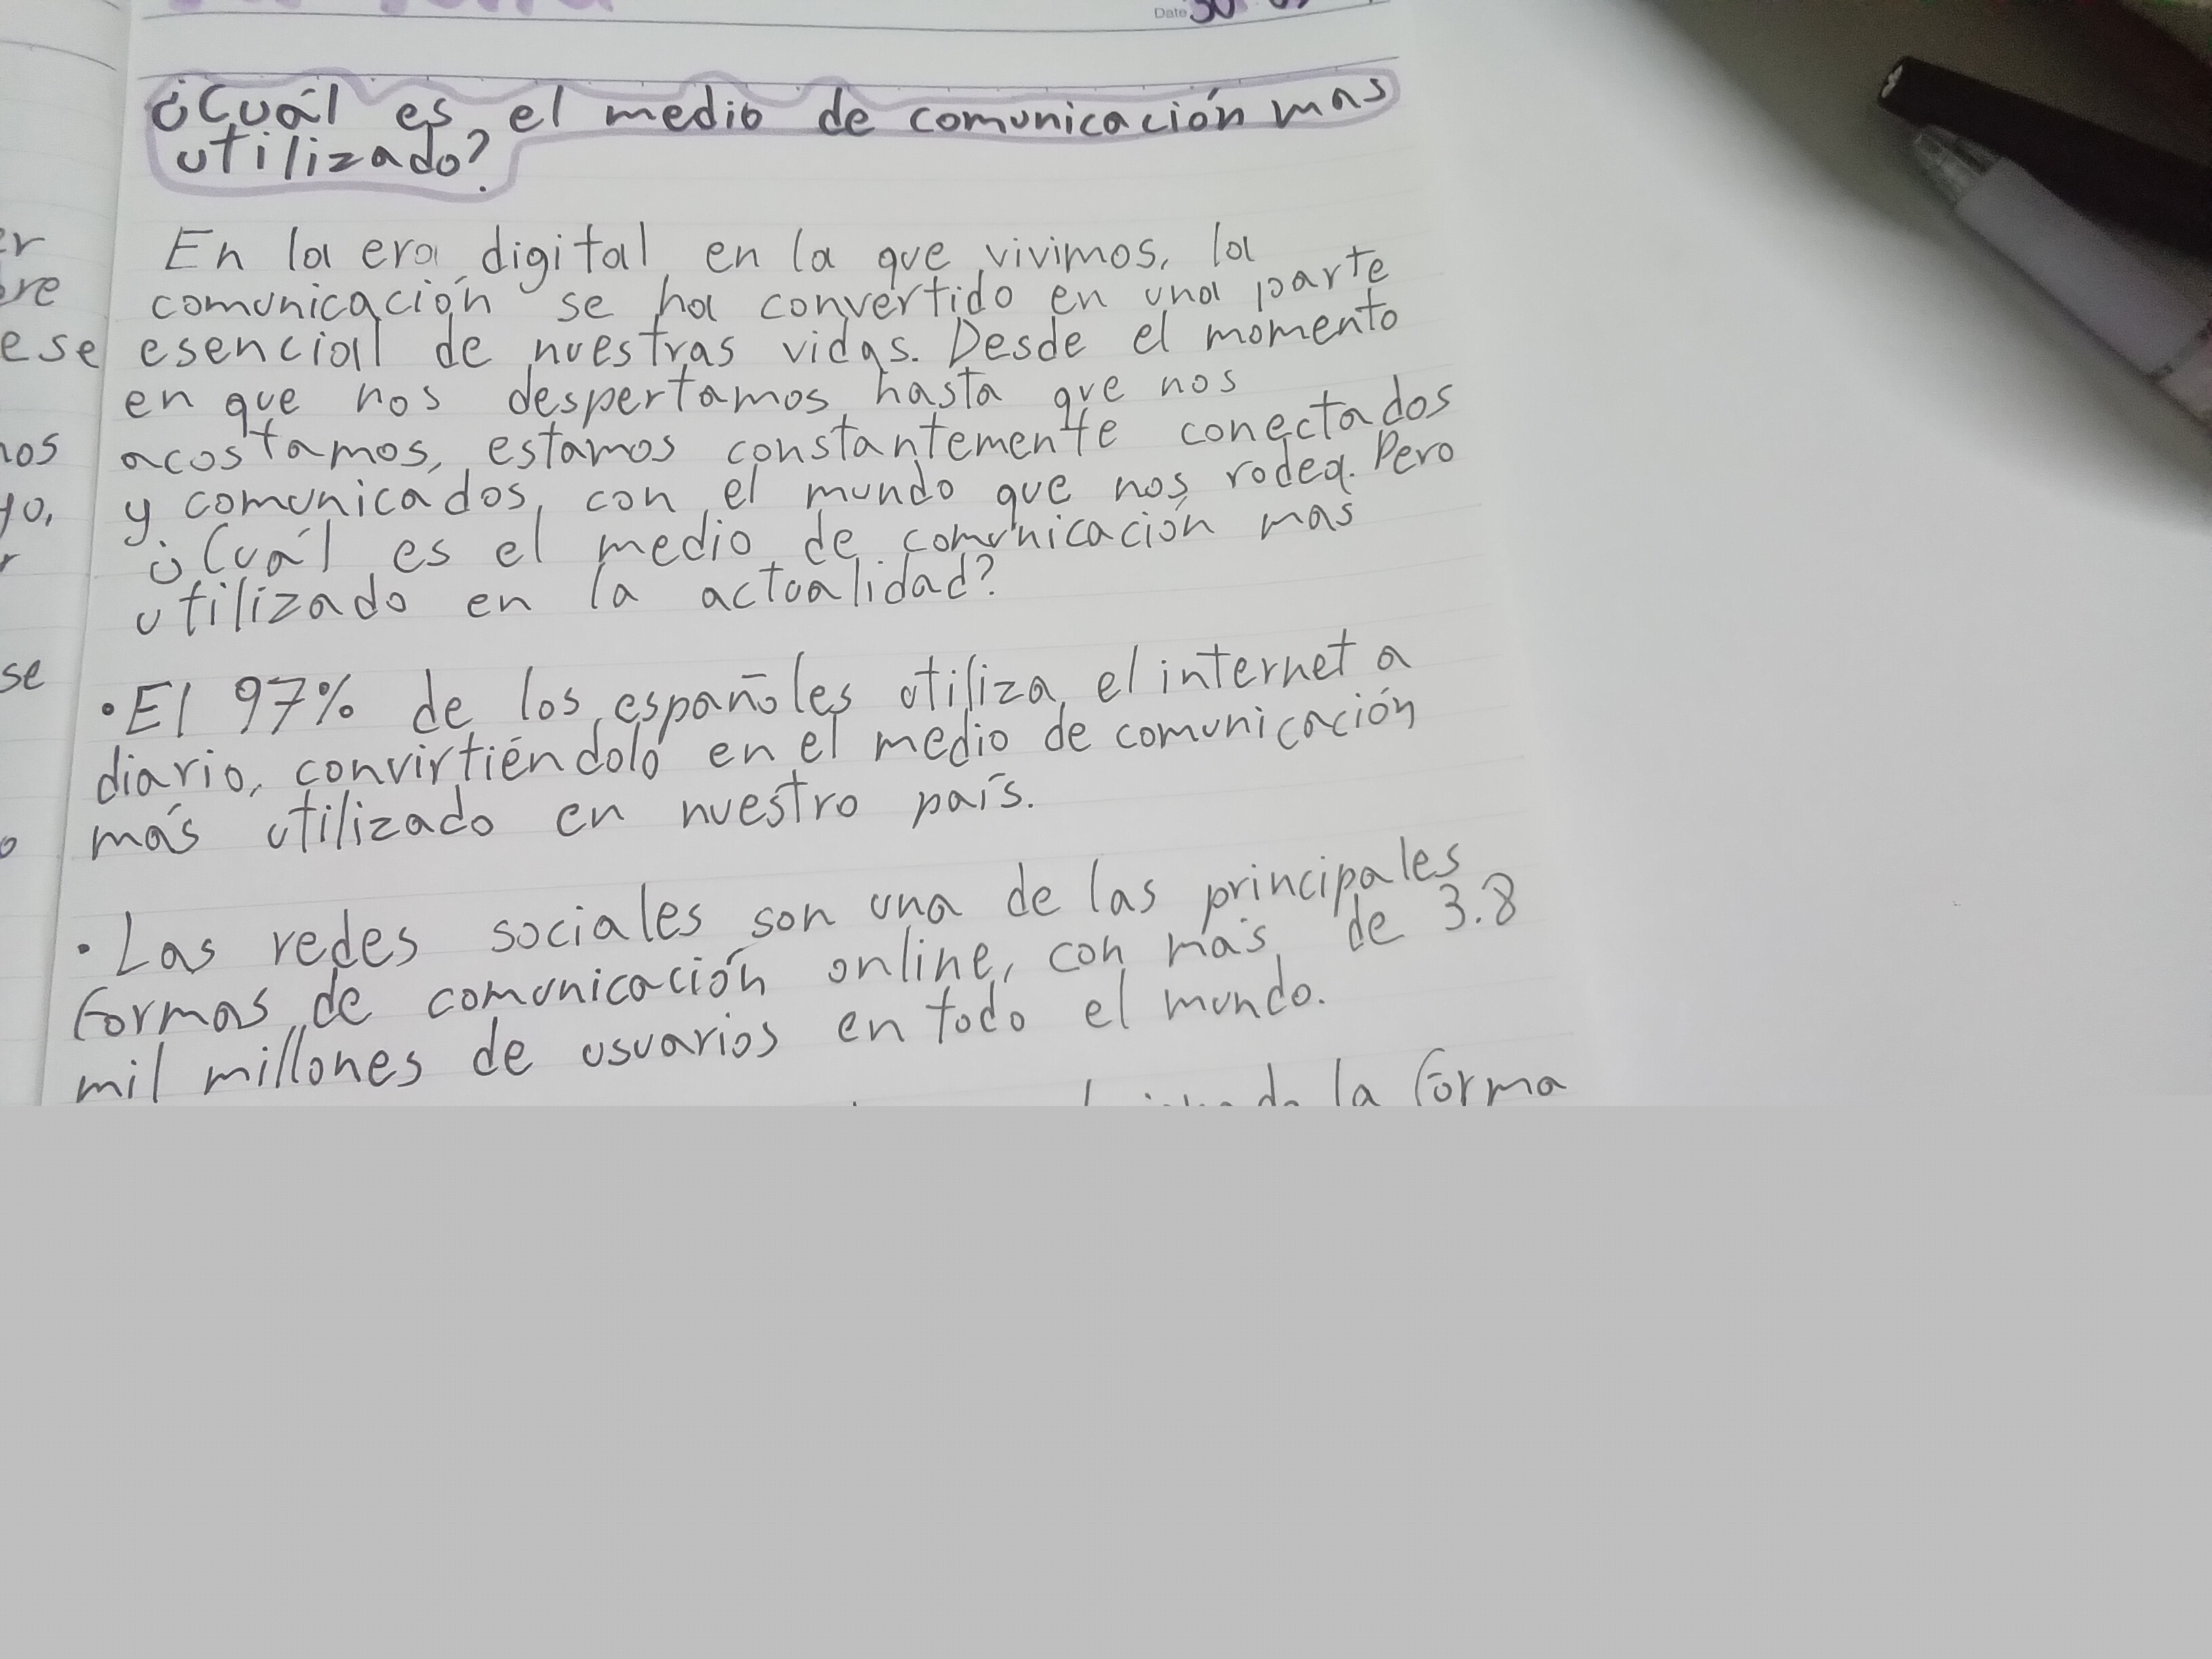 Date 30
¿Cuál es el medio de comunicación mas
utilizado?
En la era digital en la que vivimos, la
comunicación se ha convertido en una parte
esencial de nuestras vidas. Desde el momento
en que nos despertamos hasta que nos
acostamos, estamos constantemente conectados
y comunicados con el mundo que nos rodea. Pero
¿Cuál es el medio de comunicación mas
utilizado en la actualidad?
• El 97% de los españoles utiliza el internet a
diario, convirtiéndolo en el medio de comunicación
más utilizado en nuestro país.
• Las redes sociales son una de las principales
formas de comunicación online, con más de 3.8
mil millones de usuarios en todo el mundo.
la forma
er
ese
nos
se